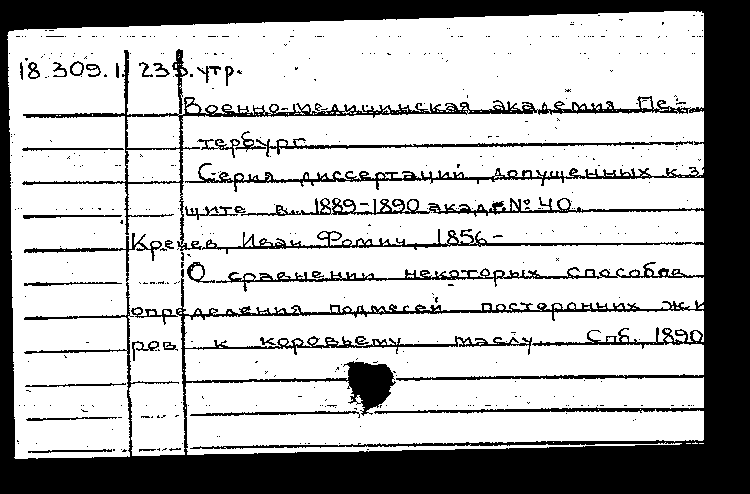 18.309.1. 235.утр.
Военно-медицинская академия Пе-
тербург.
Серия диссертаций, допущенных к за
щите в 1889-1890 акад. № 40.
Иван Фомич, 1856-
О сравнении некоторых способов
определения подмесей посторонних жи
ров к коровьему маслу. Спб., 1890